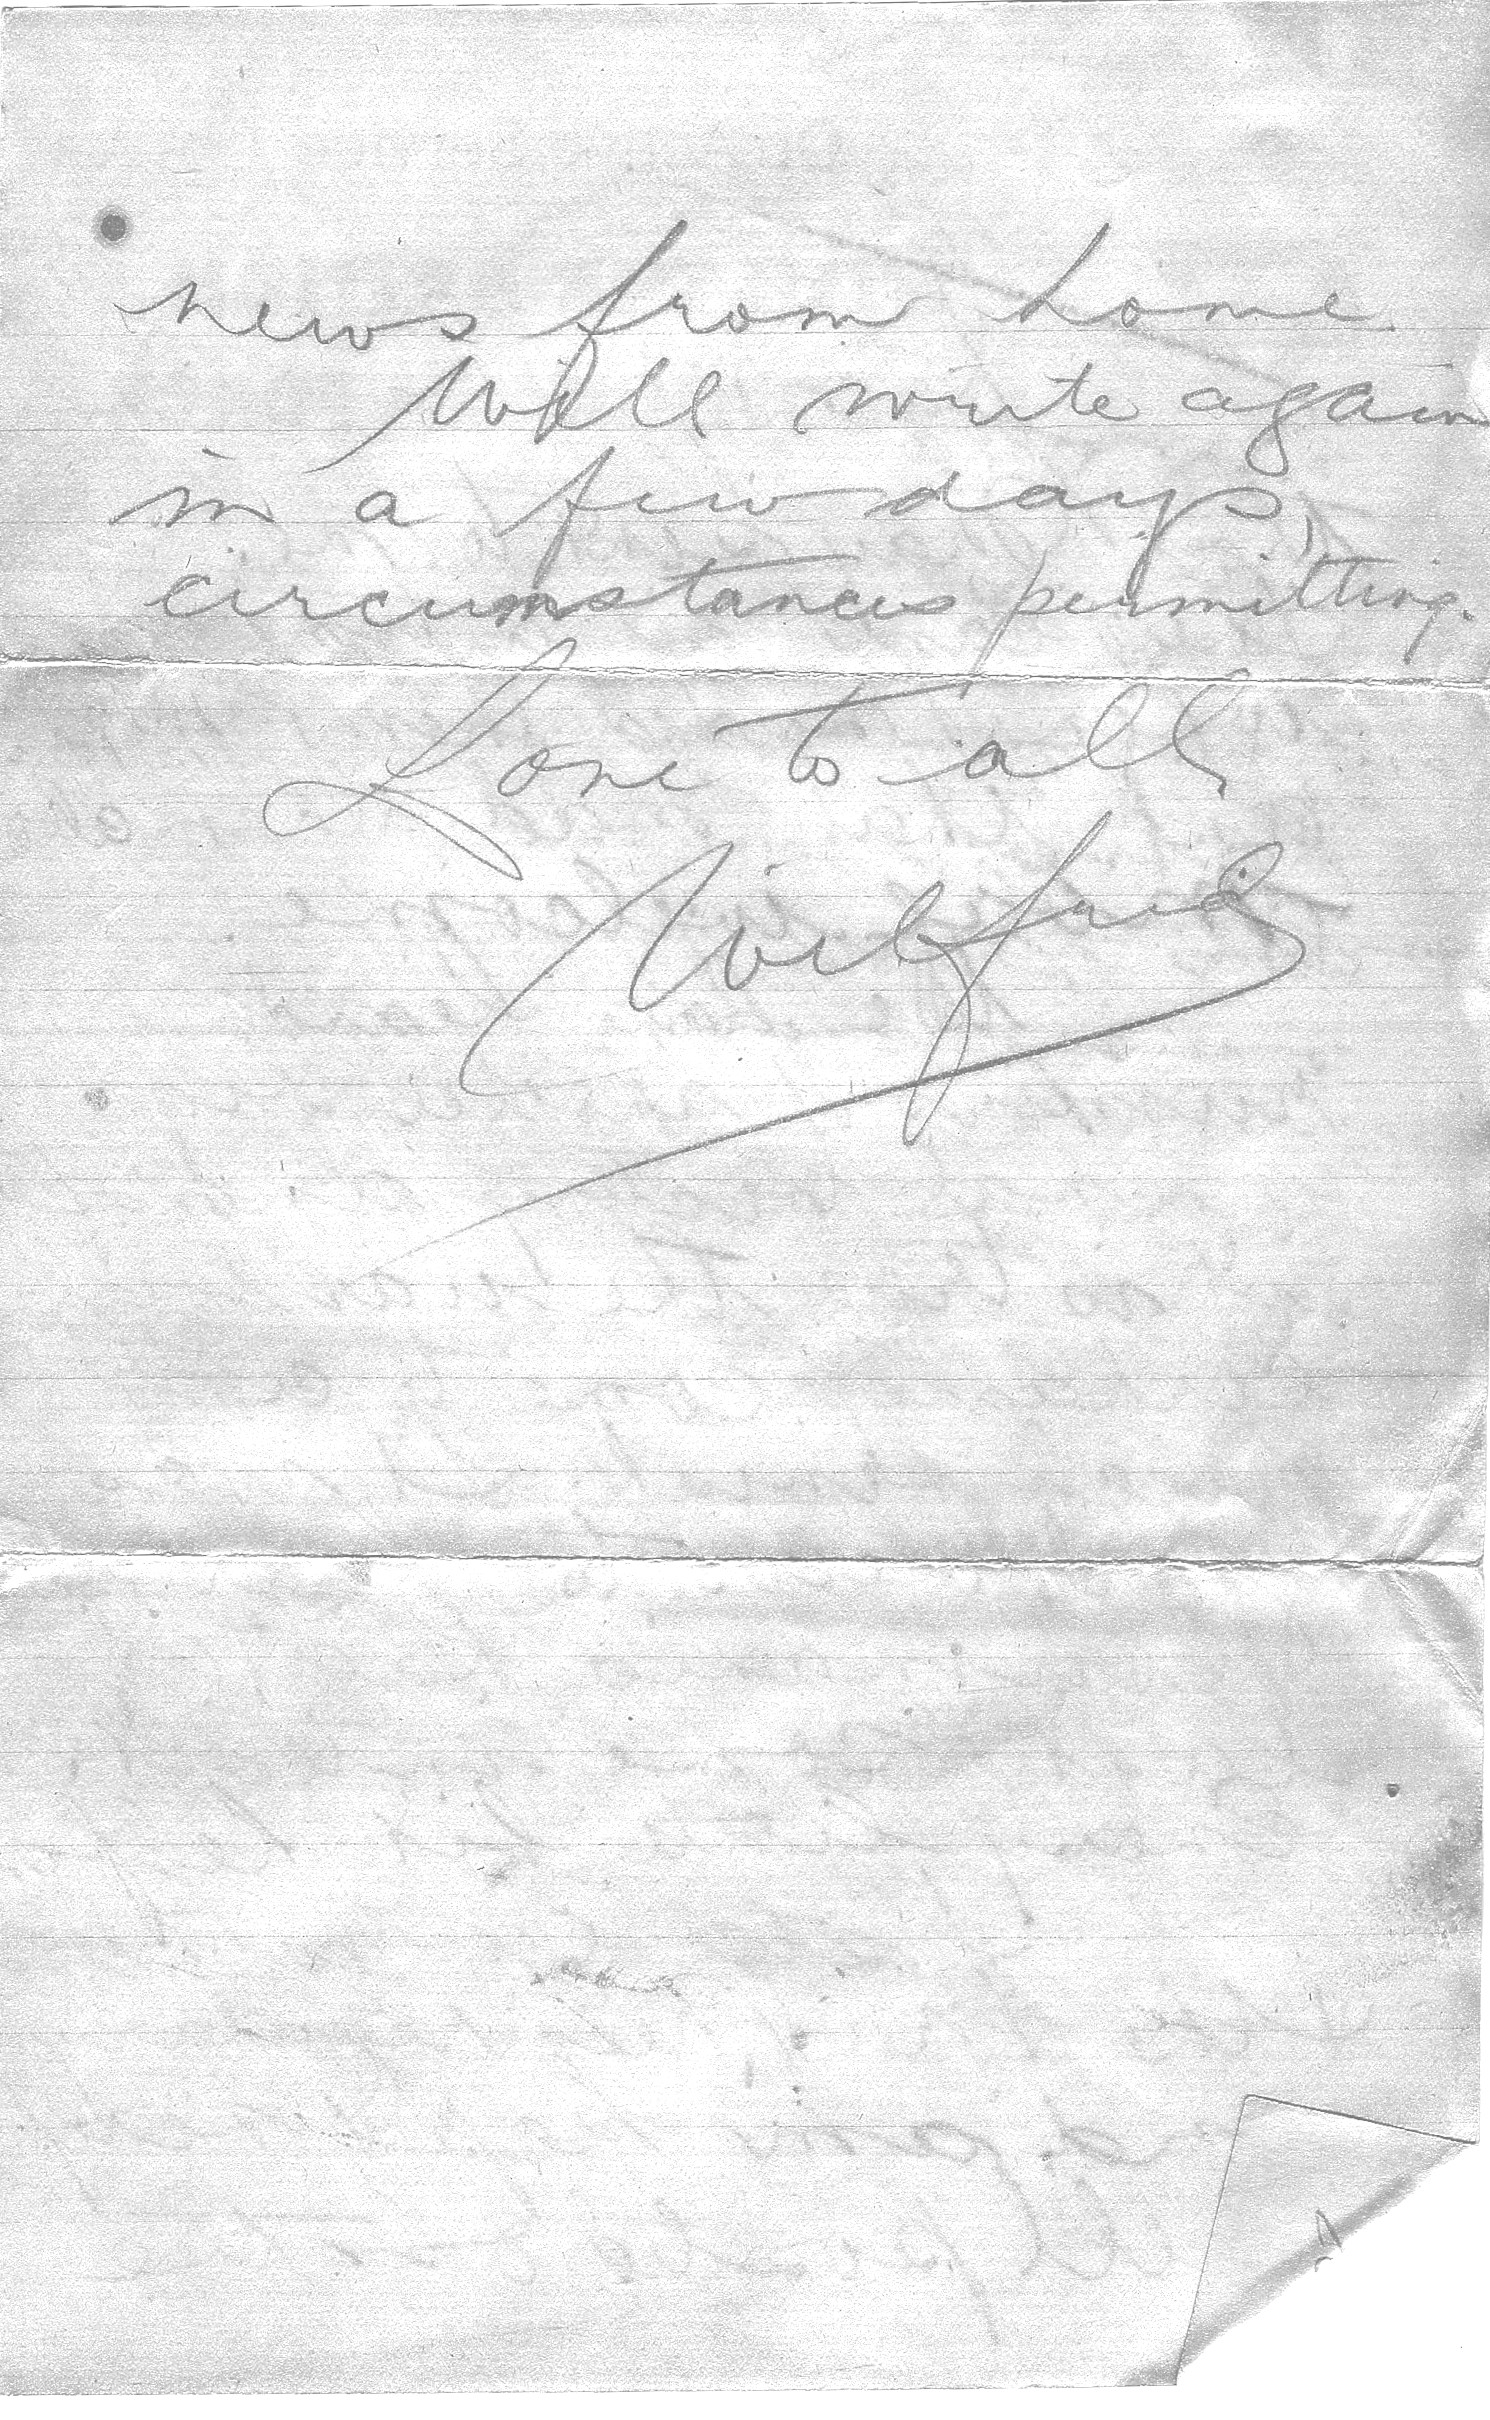 news from home
Will write again
in a few days,
circumstances permitting.
Love to all
Wilfrid